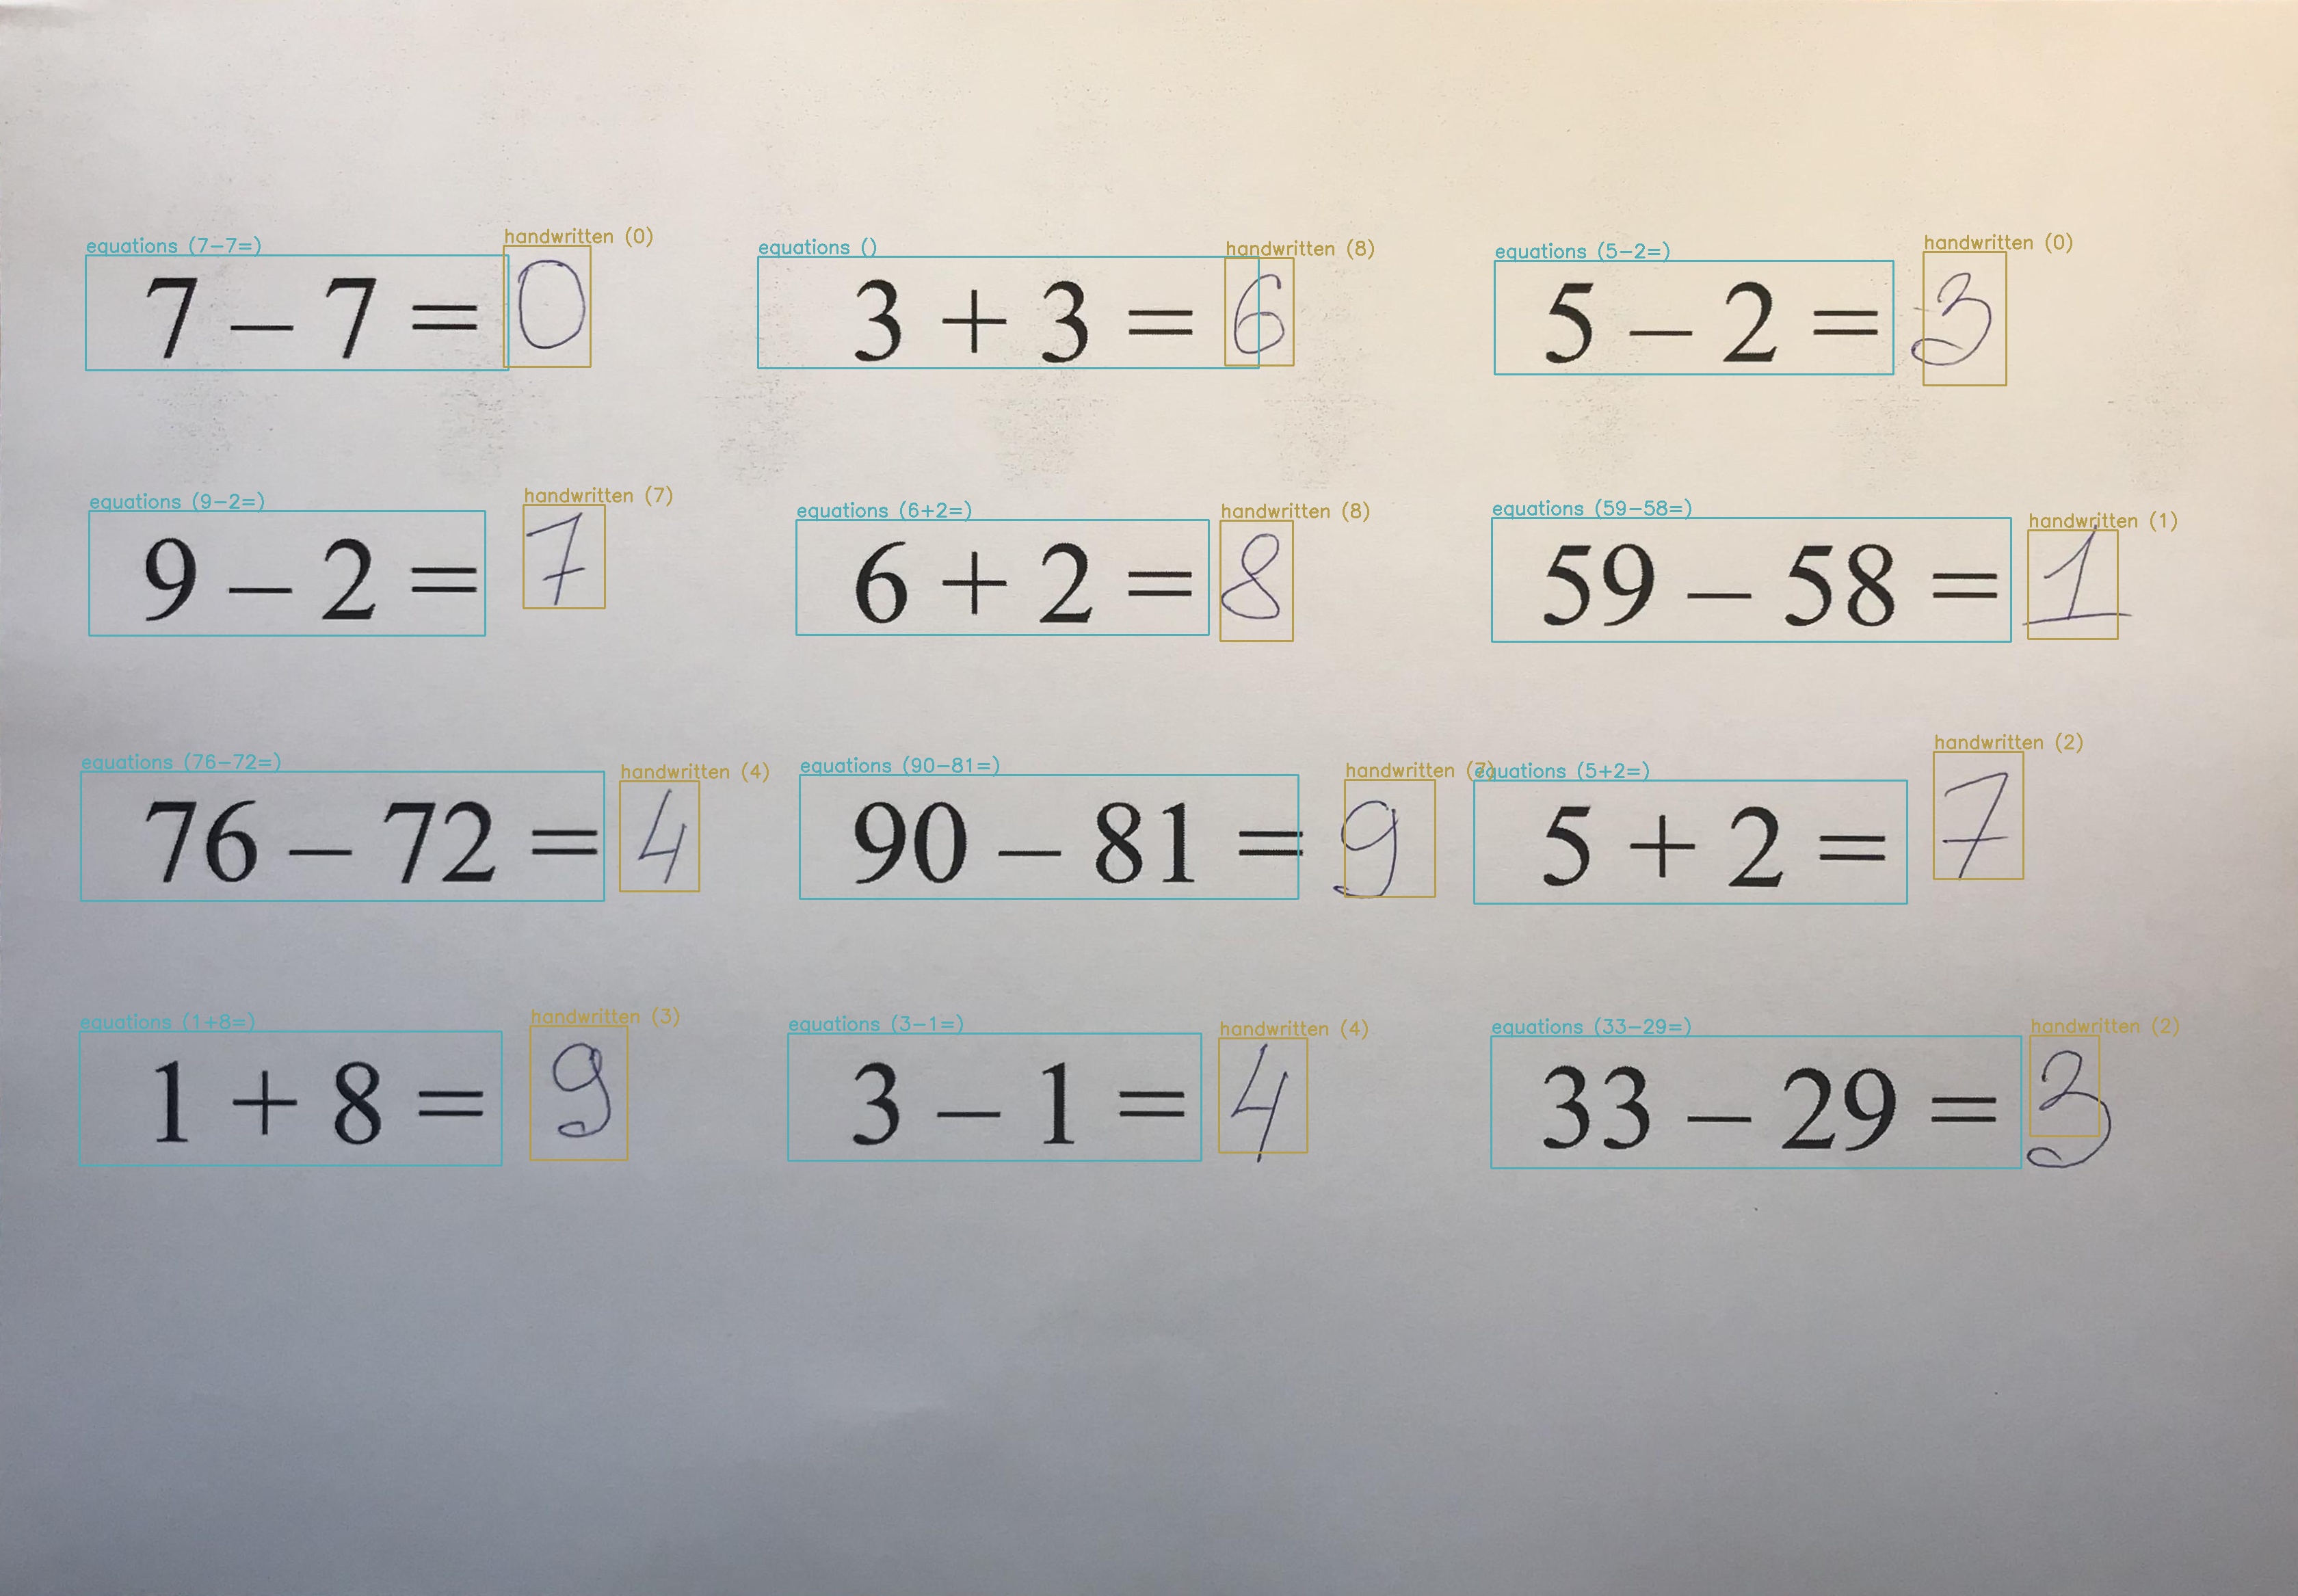 equations (7-7=) handwritten (0) equations () handwritten (8) equations (5-2=) handwritten (0)
7 – 7 = 0 3 + 3 = 6 5 – 2 = 3
equations (9-2=) handwritten (7) equations (6+2=) handwritten (8) equations (59-58=) handwritten (1)
9 – 2 = 7 6 + 2 = 8 59 – 58 = 1
equations (76-72=) handwritten (4) equations (90-81=) handwritten (7) equations (5+2=) handwritten (2)
76 – 72 = 4 90 – 81 = 9 5 + 2 = 7
equations (1+8=) handwritten (3) equations (3-1=) handwritten (4) equations (33-29=) handwritten (2)
1 + 8 = 9 3 – 1 = 4 33 – 29 = 3